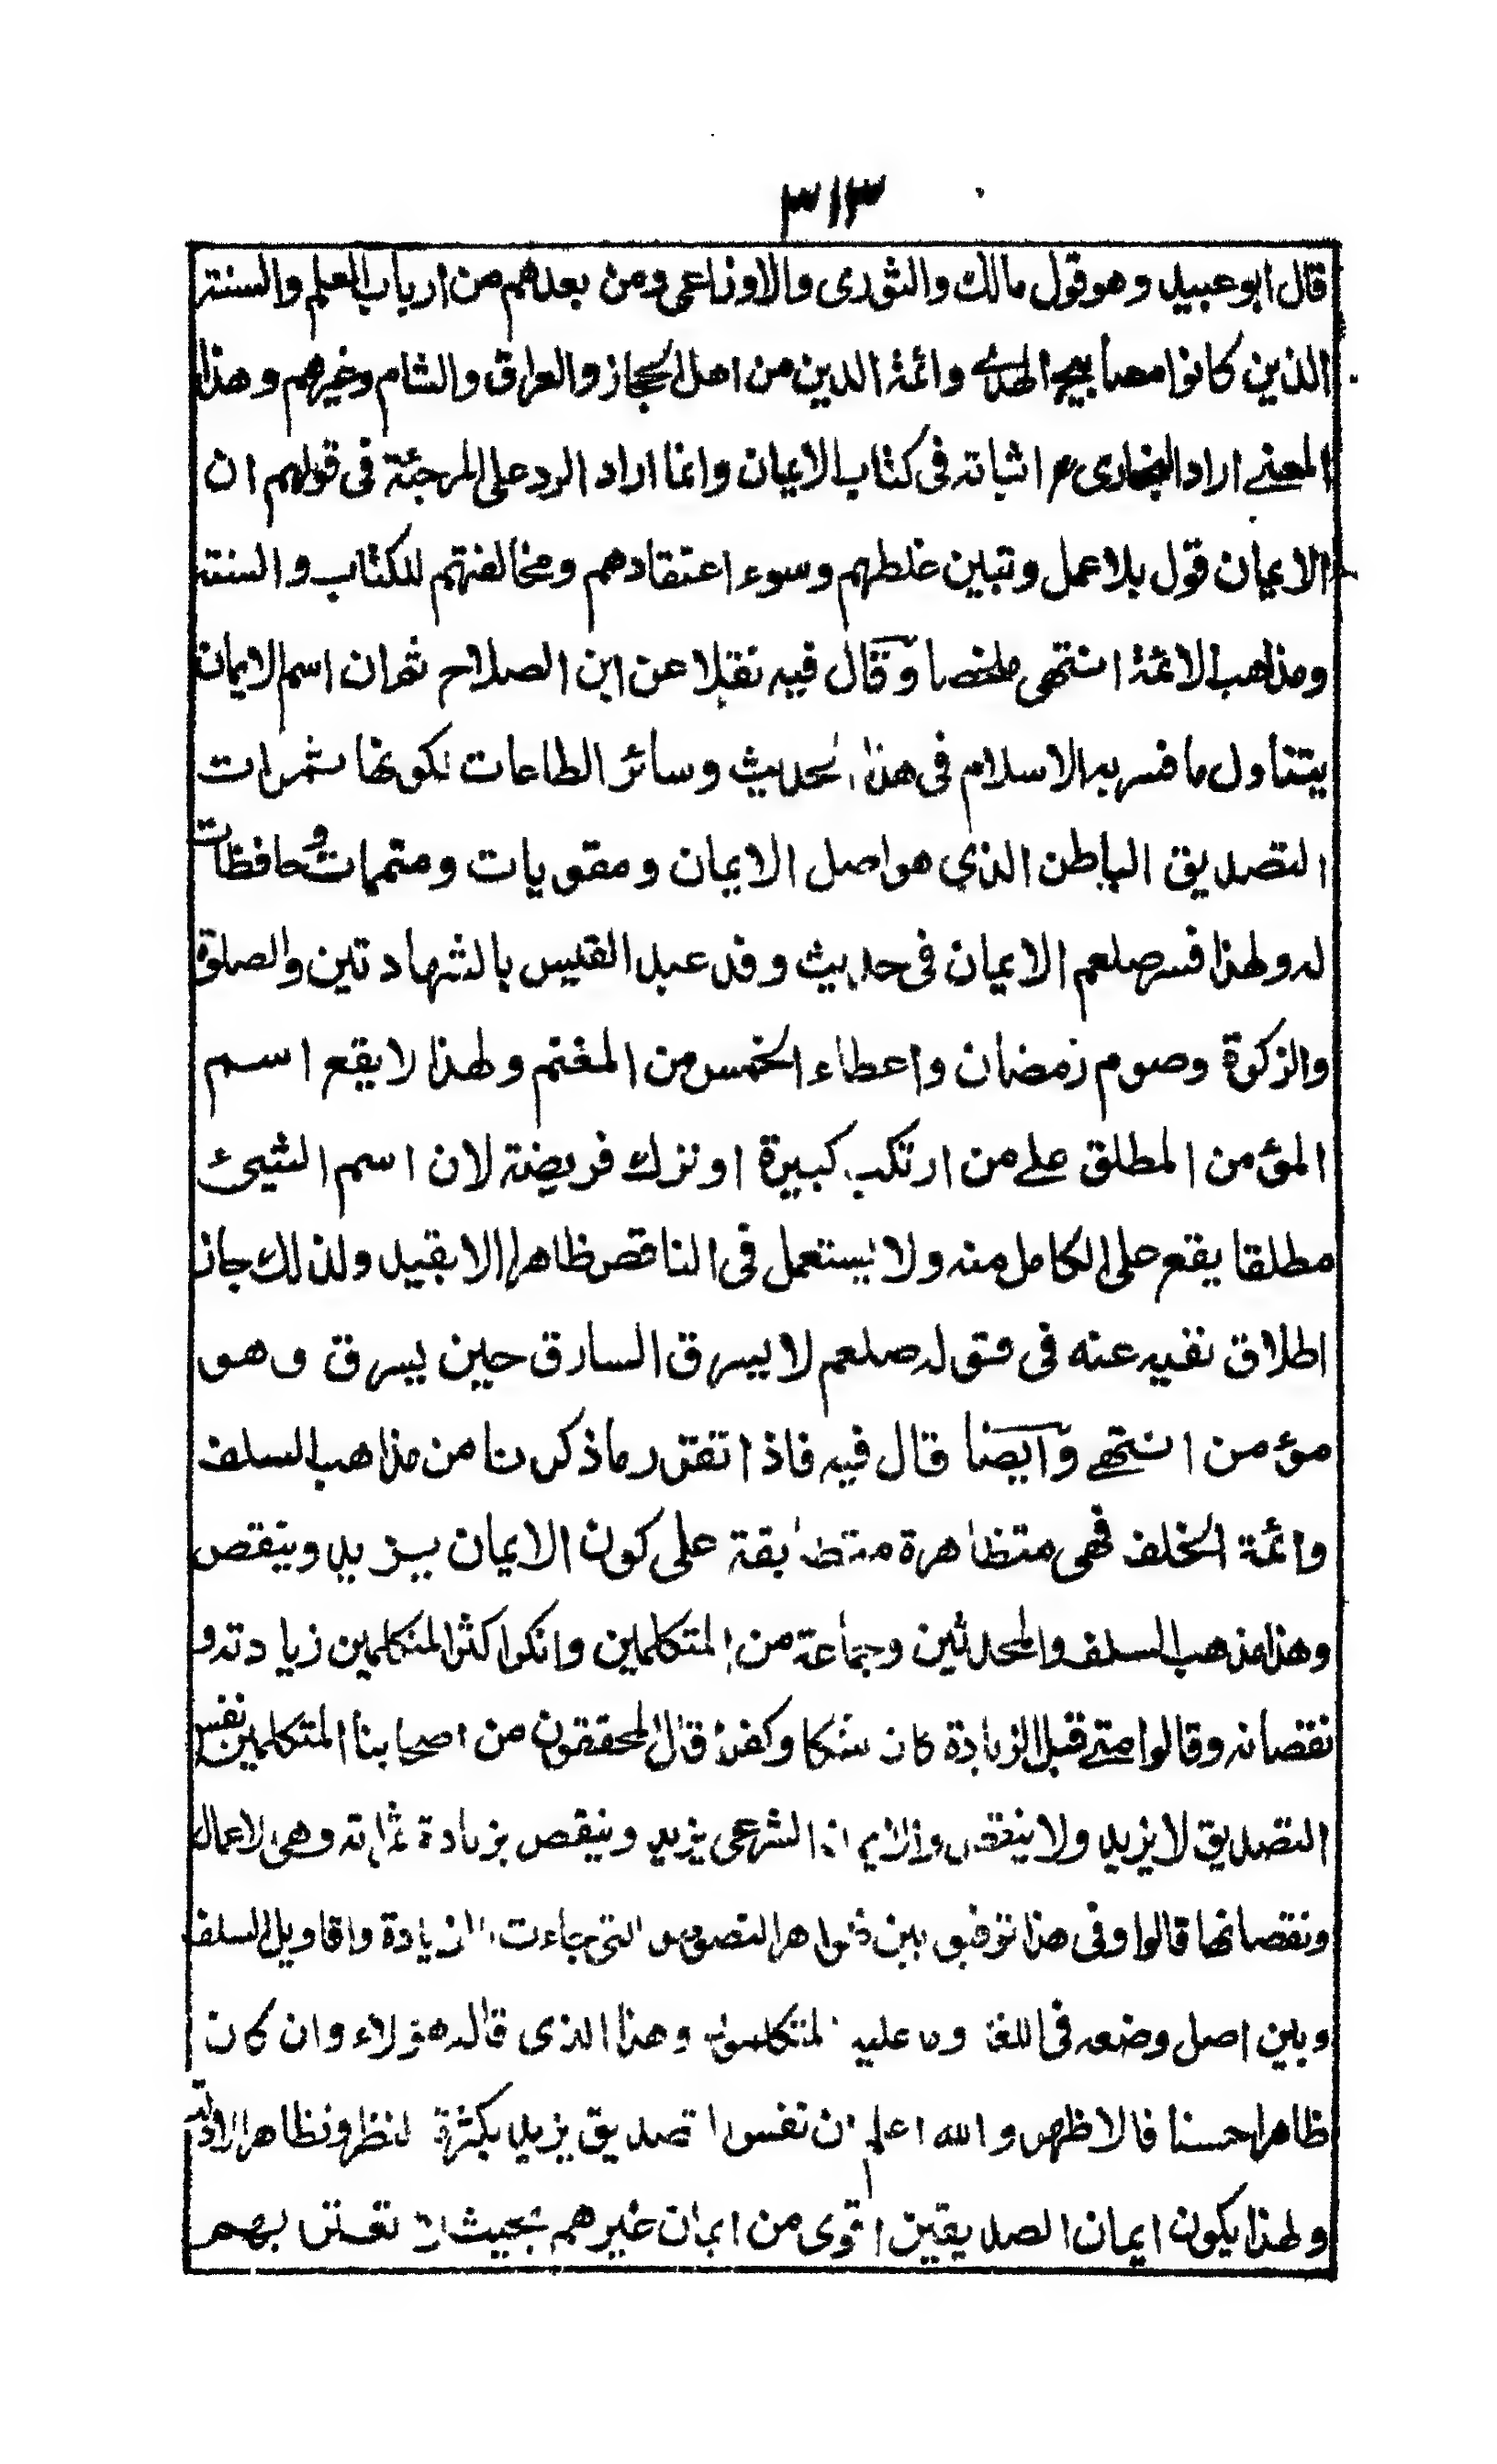 ٣١٣
قال ابو عبيد وهو قول مالك والثوري والاوزاعي ومن بعدهم من ارباب العلم والسنة
الذين كانوا مصابيح الهدے وائمة الدين من اهل الحجاز والعراق والشام وغيرهم وهذا
المعنے اراد البخاري رح اثباته فى كتاب الايمان وانما اراد الرد على المرجئة فى قولهم ان
الايمان قول بلا عمل وتبين غلطهم وسوء اعتقادهم ومخالفتهم للكتاب والسنة
ومذاهب الائمة انتهى ملخصا وقال فيه نقلا عن ابن الصلاح ثم ان اسم الايمان
يتناول ما فسر به الاسلام فى هذا الحديث وسائر الطاعات لكونها ثمرات
التصديق الباطن الذي هو اصل الايمان ومقويات ومتممات وحافظات
له ولهذا فسر صلعم الايمان فى حديث وفد عبد القيس بالشهادتين والصلوة
والزكوة وصوم رمضان واعطاء الخمس من المغتم ولهذا لا يقع اسم
المؤمن المطلق علے من ارتكب كبيرة او ترك فريضة لان اسم الشيئ
مطلقا يقع على الكامل منه ولا يستعمل فى الناقص ظاهرا الا بقيد ولذلك جاز
اطلاق نفيه عنه فى قوله صلعم لا يسرق السارق حين يسرق وهو
مؤمن انتهے وآيضا قال فيه فاذا تقرر ما ذكرنا من مذاهب السلف
وائمة الخلف فهى متظاهرة متطابقة على كون الايمان يزيد وينقص
وهذا مذهب السلف والمحدثين وجماعة من المتكلمين وانكر اكثر المتكلمين زيادته و
نقصانه وقالوا متے قبل الزيادة كان شكا وكفرا قال المحققون من اصحابنا المتكلمين نفس
التصديق لا يزيد ولا ينقص والايمان الشرعى يزيد وينقص بزيادة ثمراته وهى الاعمال
ونقصانها قالوا وفى هذا توفيق بين ظواهر النصوص التى جاءت بالزيادة واقاويل السلف
وبين اصل وضعه فى اللغة وما عليه المتكلمون وهذا الذى قاله هؤلاء وان كان
ظاهرا حسنا فالاظهر والله اعلم ان نفس التصديق يزيد بكثرة النظر وتظاهر الادلة
ولهذا يكون ايمان الصديقين اقوى من ايمان غيرهم بحيث لا تعترى بهم